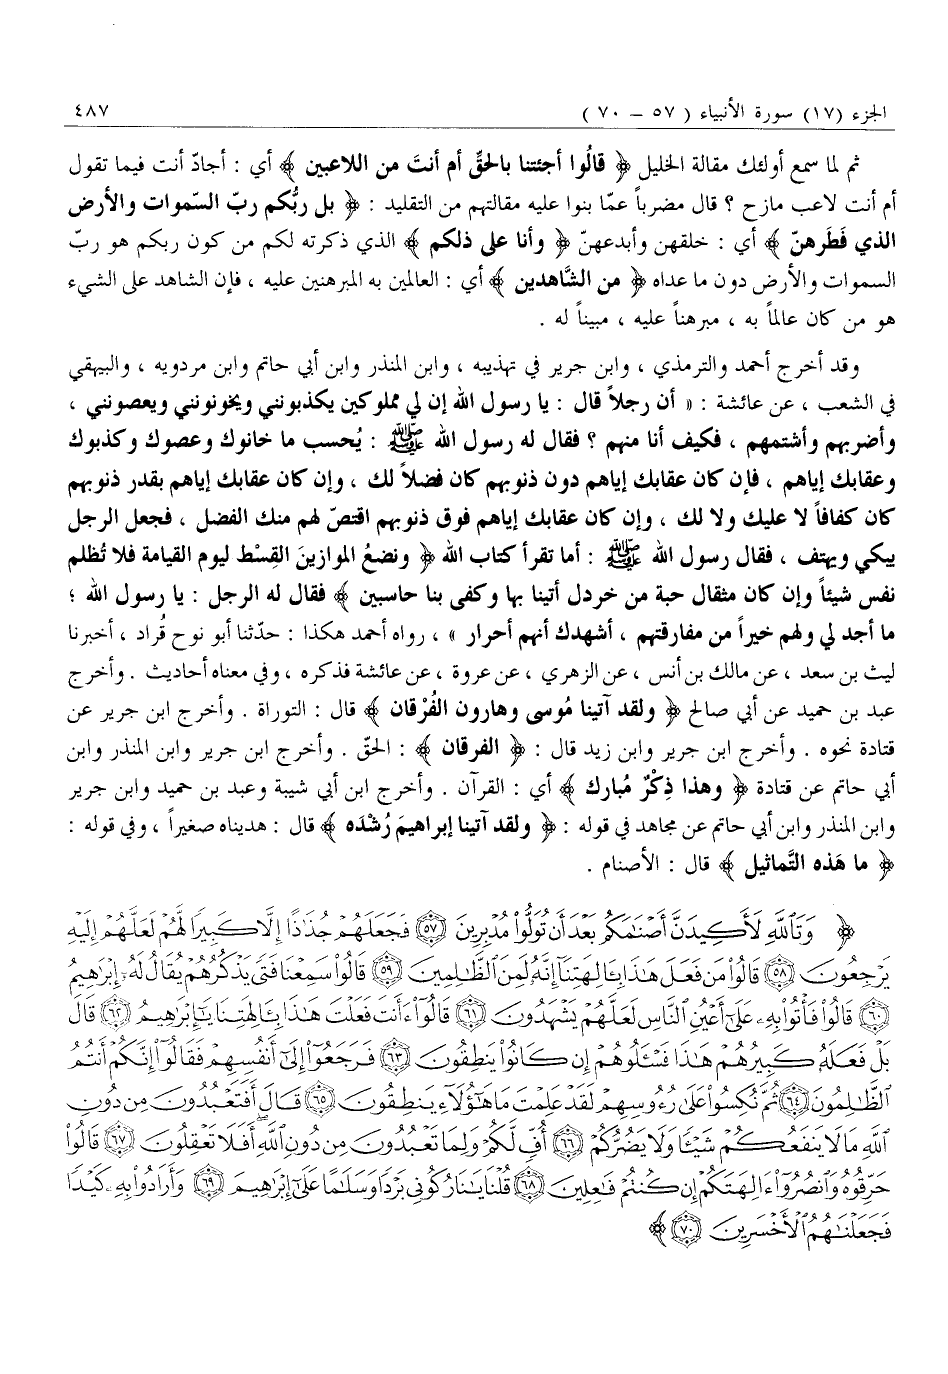 الجزء (١٧) سورة الأنبياء ( ٥٧ – ٧٠ ) ٤٨٧
ثم لما سمع أولئك مقالة الخليل ﴿ قالُوا أجئتنا بالحقِّ أم أنتَ من اللاعبين ﴾ أي : أجادّ أنت فيما تقول
أم أنت لاعب مازح ؟ قال مضرباً عمّا بنوا عليه مقالتهم من التقليد : ﴿ بل ربُّكم ربّ السّموات والأرض
الذي فَطَرهنّ ﴾ أي : خلقهن وأبدعهنّ ﴿ وأنا على ذلكم ﴾ الذي ذكرته لكم من كون ربكم هو ربّ
السموات والأرض دون ما عداه ﴿ من الشَّاهدين ﴾ أي : العالمين به المبرهنين عليه ، فإن الشاهد على الشيء
هو من كان عالماً به ، مبرهناً عليه ، مبيناً له .
وقد أخرج أحمد والترمذي ، وابن جرير في تهذيبه ، وابن المنذر وابن أبي حاتم وابن مردويه ، والبيهقي
في الشعب ، عن عائشة : « أن رجلاً قال : يا رسول الله إن لي مملوكين يكذبونني ويخونونني ويعصونني ،
وأضربهم وأشتمهم ، فكيف أنا منهم ؟ فقال له رسول الله ﷺ : يُحسب ما خانوك وعصوك وكذبوك
وعقابك إياهم ، فإن كان عقابك إياهم دون ذنوبهم كان فضلاً لك ، وإن كان عقابك إياهم بقدر ذنوبهم
كان كفافاً لا عليك ولا لك ، وإن كان عقابك إياهم فوق ذنوبهم اقتصّ لهم منك الفضل ، فجعل الرجل
يبكي ويهتف ، فقال رسول الله ﷺ : أما تقرأ كتاب الله ﴿ ونضعُ الموازينَ القِسْط ليوم القيامة فلا تُظلم
نفس شيئاً وإن كان مثقال حبة من خردل أتينا بها وكفى بنا حاسبين ﴾ فقال له الرجل : يا رسول الله ؛
ما أجد لي ولهم خيراً من مفارقتهم ، أشهدك أنهم أحرار » ، رواه أحمد هكذا : حدّثنا أبو نوح قُراد ، أخبرنا
ليث بن سعد ، عن مالك بن أنس ، عن الزهري ، عن عروة ، عن عائشة فذكره ، وفي معناه أحاديث . وأخرج
عبد بن حميد عن أبي صالح ﴿ ولقد آتينا مُوسى وهارون الفُرْقان ﴾ قال : التوراة . وأخرج ابن جرير عن
قتادة نحوه . وأخرج ابن جرير وابن زيد قال : ﴿ الفرقان ﴾ : الحقّ . وأخرج ابن جرير وابن المنذر وابن
أبي حاتم عن قتادة ﴿ وهذا ذِكْرٌ مُبارك ﴾ أي : القرآن . وأخرج ابن أبي شيبة وعبد بن حميد وابن جرير
وابن المنذر وابن أبي حاتم عن مجاهد في قوله : ﴿ ولقد آتينا إبراهيمَ رُشْدَه ﴾ قال : هديناه صغيراً ، وفي قوله :
﴿ ما هَذه التَّماثيل ﴾ قال : الأصنام .
﴿ وَتَٱللَّهِ لَأَكِيدَنَّ أَصْنَٰمَكُم بَعْدَ أَن تُوَلُّوا۟ مُدْبِرِينَ ۝٥٧ فَجَعَلَهُمْ جُذَٰذًا إِلَّا كَبِيرًا لَّهُمْ لَعَلَّهُمْ إِلَيْهِ
يَرْجِعُونَ ۝٥٨ قَالُوا۟ مَن فَعَلَ هَٰذَا بِـَٔالِهَتِنَآ إِنَّهُۥ لَمِنَ ٱلظَّٰلِمِينَ ۝٥٩ قَالُوا۟ سَمِعْنَا فَتًى يَذْكُرُهُمْ يُقَالُ لَهُۥٓ إِبْرَٰهِيمُ
۝٦٠ قَالُوا۟ فَأْتُوا۟ بِهِۦ عَلَىٰٓ أَعْيُنِ ٱلنَّاسِ لَعَلَّهُمْ يَشْهَدُونَ ۝٦١ قَالُوٓا۟ ءَأَنتَ فَعَلْتَ هَٰذَا بِـَٔالِهَتِنَا يَٰٓإِبْرَٰهِيمُ ۝٦٢ قَالَ
بَلْ فَعَلَهُۥ كَبِيرُهُمْ هَٰذَا فَسْـَٔلُوهُمْ إِن كَانُوا۟ يَنطِقُونَ ۝٦٣ فَرَجَعُوٓا۟ إِلَىٰٓ أَنفُسِهِمْ فَقَالُوٓا۟ إِنَّكُمْ أَنتُمُ
ٱلظَّٰلِمُونَ ۝٦٤ ثُمَّ نُكِسُوا۟ عَلَىٰ رُءُوسِهِمْ لَقَدْ عَلِمْتَ مَا هَٰٓؤُلَآءِ يَنطِقُونَ ۝٦٥ قَالَ أَفَتَعْبُدُونَ مِن دُونِ
ٱللَّهِ مَا لَا يَنفَعُكُمْ شَيْـًٔا وَلَا يَضُرُّكُمْ ۝٦٦ أُفٍّ لَّكُمْ وَلِمَا تَعْبُدُونَ مِن دُونِ ٱللَّهِ أَفَلَا تَعْقِلُونَ ۝٦٧ قَالُوا۟
حَرِّقُوهُ وَٱنصُرُوٓا۟ ءَالِهَتَكُمْ إِن كُنتُمْ فَٰعِلِينَ ۝٦٨ قُلْنَا يَٰنَارُ كُونِى بَرْدًا وَسَلَٰمًا عَلَىٰٓ إِبْرَٰهِيمَ ۝٦٩ وَأَرَادُوا۟ بِهِۦ كَيْدًا
فَجَعَلْنَٰهُمُ ٱلْأَخْسَرِينَ ۝٧٠ ﴾